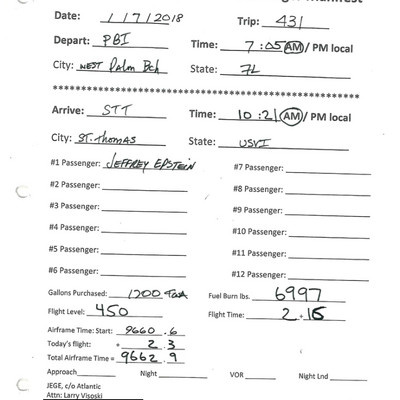 Manifest
Date: 1/7/2018 Trip: 431
Depart: PBI Time: 7:05 AM / PM local
City: West Palm Bch State: FL
****************************************************
Arrive: STT Time: 10:21 AM / PM local
City: St. Thomas State: USVI
#1 Passenger: JEFFREY EPSTEIN #7 Passenger:
#2 Passenger: #8 Passenger:
#3 Passenger: #9 Passenger:
#4 Passenger: #10 Passenger:
#5 Passenger: #11 Passenger:
#6 Passenger: #12 Passenger:
Gallons Purchased: 1200 Fuel Burn lbs. 6997
Flight Level: 450 Flight Time: 2.15
Airframe Time: Start: 9660.6
Today's flight: + 2.3
Total Airframe Time = 9662.9
Approach Night VOR Night Lnd
JEGE, c/o Atlantic
Attn: Larry Visoski